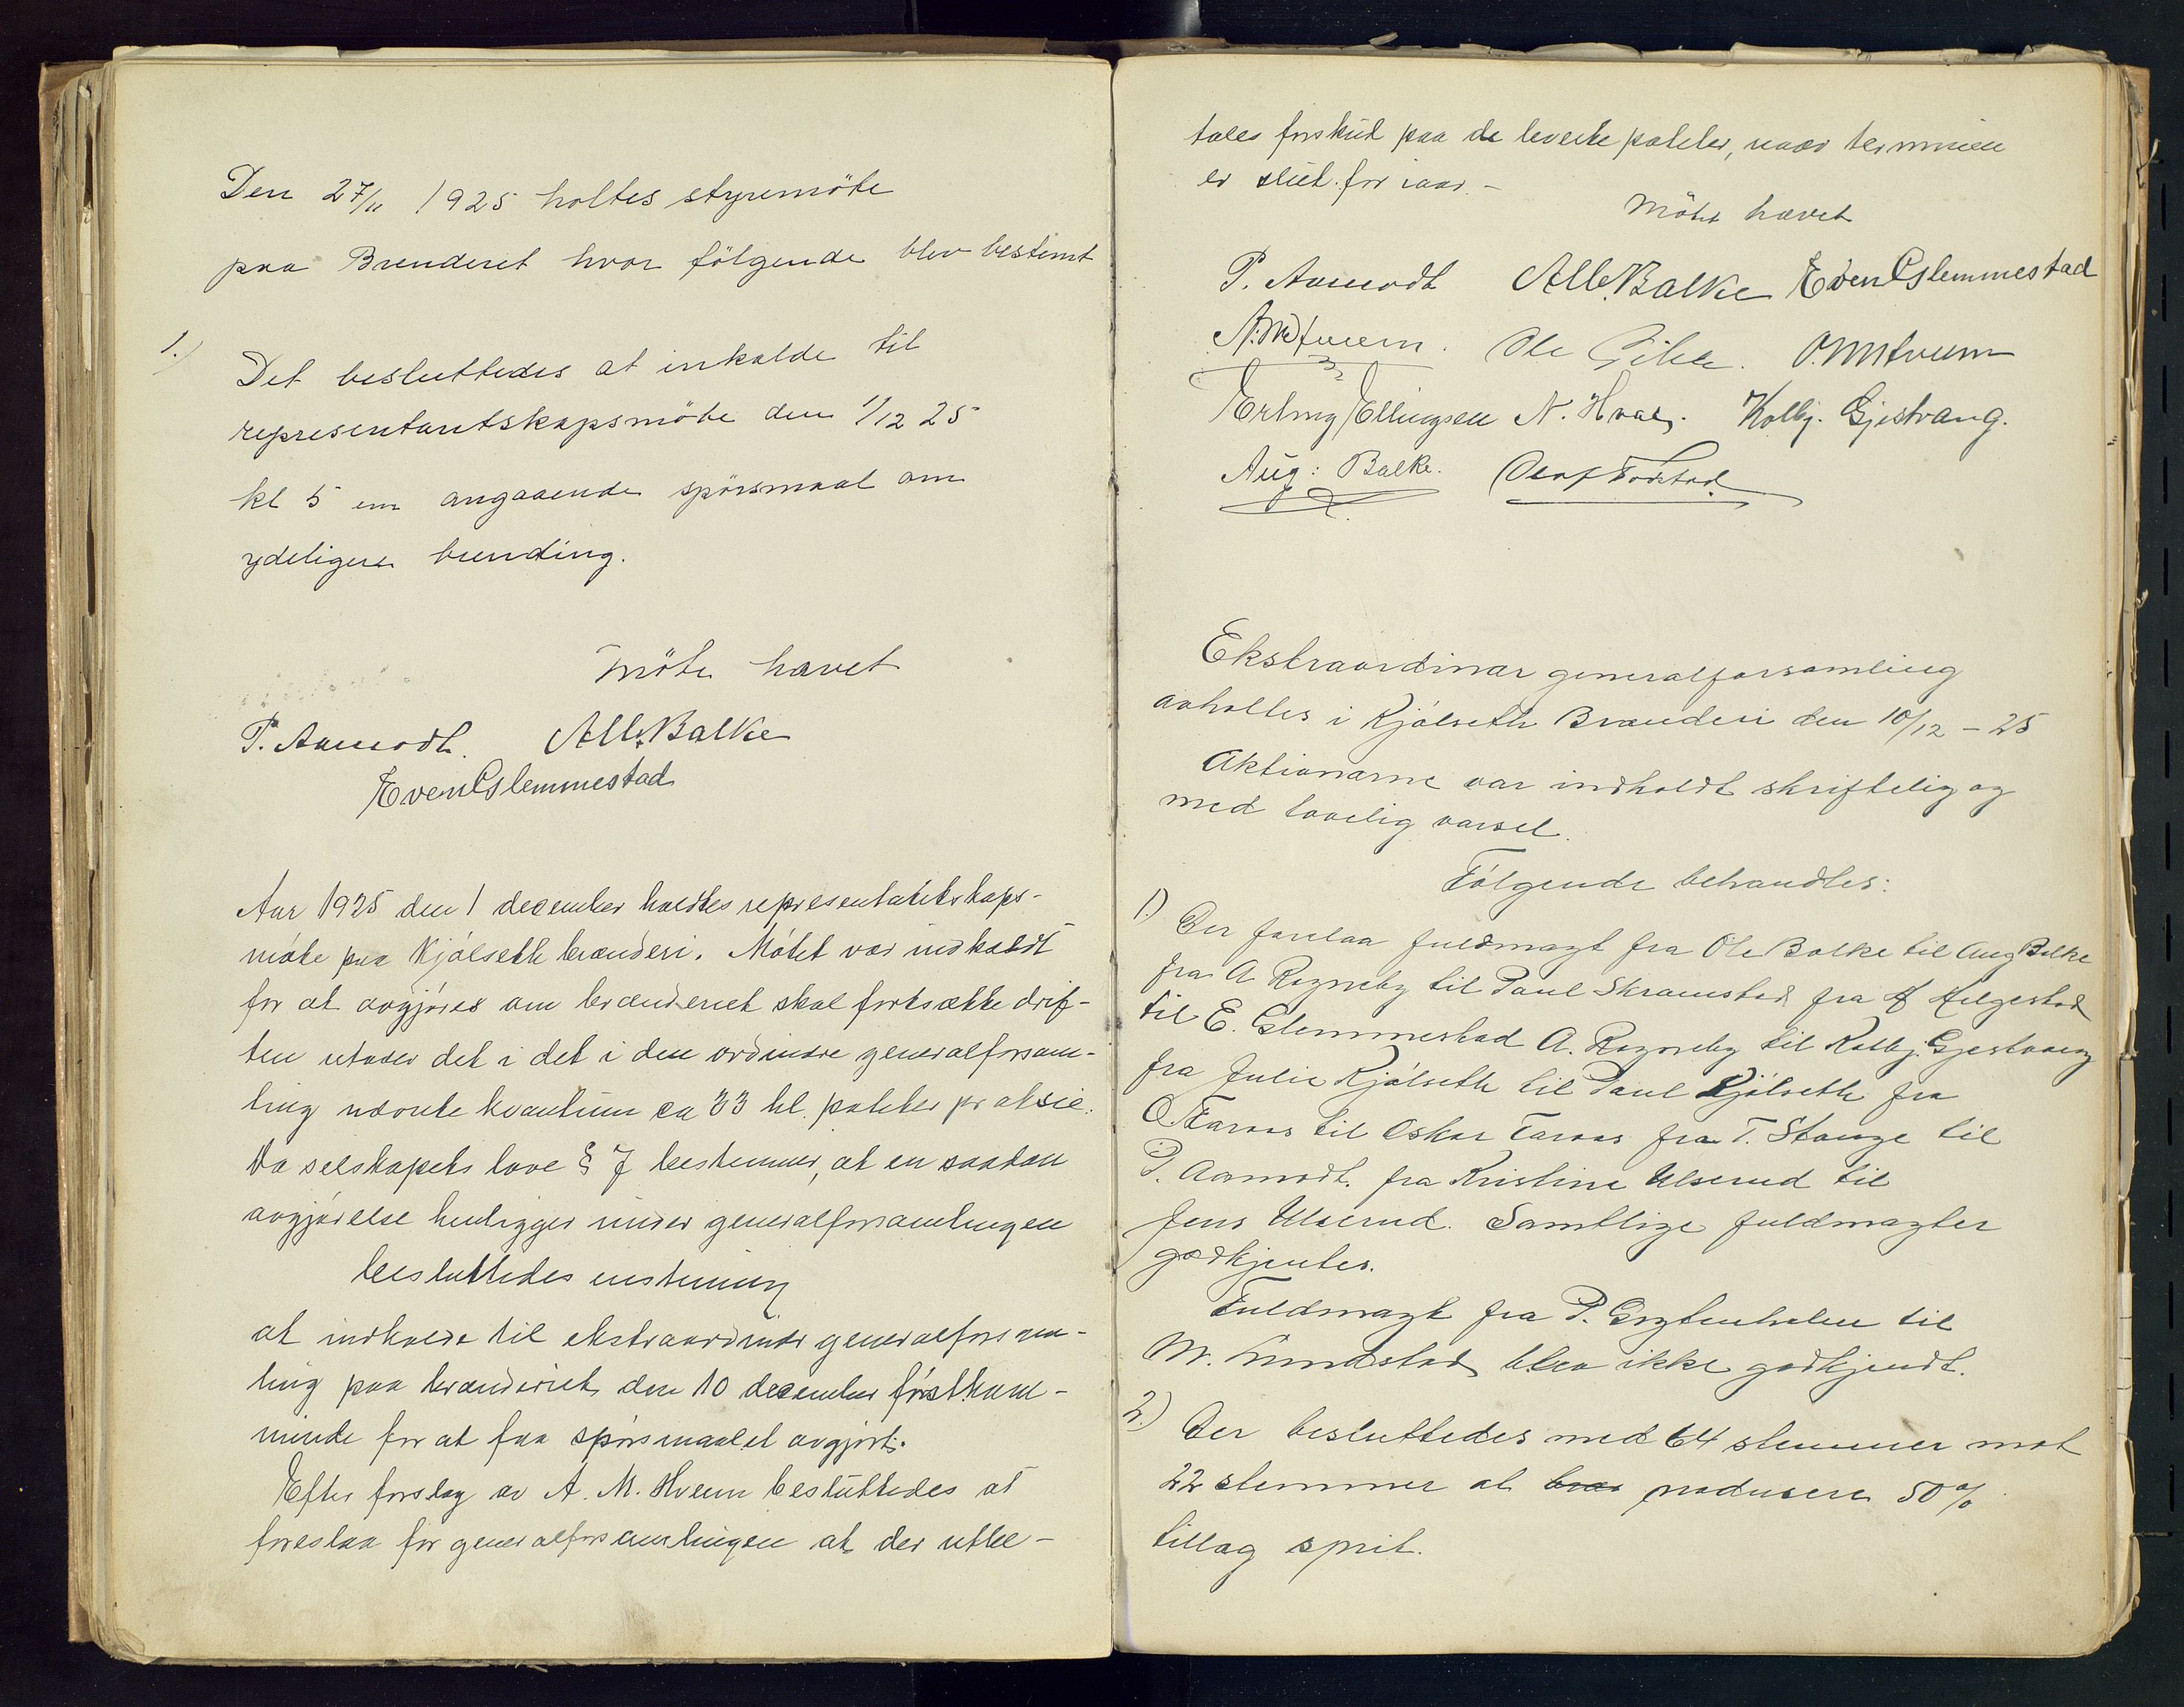 Den 27/11 1925 holtes styremöte
paa Brenderet hvor fölgende blev bestemt
1.) Det besluttedes at inkalde til
representantskapsmöte den 1/12 25
kl 5 em angaaende spörsmaal om
ydeligere brending.
Möte hævet
P. Aamodt. Alb. Balke
Even Glemmestad
Aar 1925 den 1 december holdtes representantskaps-
möte paa Kjölseth brænderi. Mötet var indkaldt
for at avgjöres om brænderiet skal fortsætte drif-
ten utover det i det i den ordinære generalforsam-
ling vedtatte kvantum ca 33 hl. poteter pr aksie.
Da selskapets love § 7 bestemmer, at en saadan
avgjörelse henligger under generalforsamlingen
besluttedes enstemmig
at indkalde til ekstraordinær generalforsam-
ling paa brænderiet den 10 december förstkom-
mende for at faa spörsmaalet avgjort.
Efter forslag av A. M. Hveem besluttedes at
foreslaa for generalforsamlingen at der utbe-
tales forskud paa de leverte poteter, naar terminen
er slut for iaar. -
Mötet hævet
P. Aamodt Alb. Balke Even Glemmestad
A. M. Hveem. Ole Gihle. O. M. Hveem
Erling Ellingsen N. Hval. Kolbj. Gjestvang.
Aug: Balke. Olaf
Ekstraordinær generalforsamling
avholtes i Kjölseth Brænderi den 10/12 - 25
Aktionærne var indkaldt skriftelig og
med lovelig varsel.
Fölgende behandles:
1.) Der forelaa fuldmagt fra Ole Balke til Aug Balke
fra A Rogneby til Paul Skramstad fra A Helgestad
til E. Glemmestad A. Rogneby til Kolbj. Gjestvang
fra Julie Kjölseth til Paul Kjölseth fra
O Faraas til Oskar Faraas fra T. Stange til
P. Aamodt. fra Kristine Ulserud til
Jens Ulserud. Samtlige fuldmagter
godkjentes.
Fuldmagt fra P. til
M. Lundstad blev ikke godkjendt.
2.) Der besluttedes med 64 stemmer mot
22 stemmer at producere 50%
tillæg sprit.